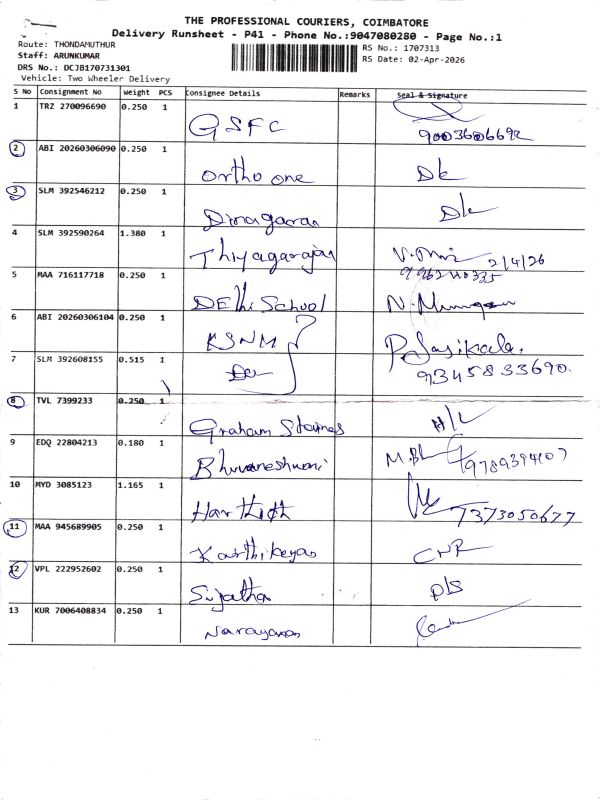 THE PROFESSIONAL COURIERS, COIMBATORE
Delivery Runsheet - P41 - Phone No.:9047080280 - Page No.:1
Route: THONDAMUTHUR
Staff: ARUNKUMAR
DRS No.: DCJB170731301
Vehicle: Two Wheeler Delivery
RS No.: 1707313
RS Date: 02-Apr-2026
S No Consignment No Weight PCS Consignee Details Remarks Seal & Signature
1 TRZ 270096690 0.250 1 GSFC 9003606692
2 ABI 20260306090 0.250 1 Ortho one
3 SLM 392546212 0.250 1 Dinagaran
4 SLM 392590264 1.380 1 Thiyagarajan 2/4/26
5 MAA 716117718 0.250 1 DElhi School
6 ABI 20260306104 0.250 1 KSNM P. Sasikala.
7 SLM 392608155 0.515 1 Do 9345833690.
8 TVL 7399233 0.250 1 Graham Staines H/L
9 EDQ 22804213 0.180 1 Bhuvaneshwari
10 MYD 3085123 1.165 1 Harthick 7373050677
11 MAA 945689905 0.250 1 Karthikeyan CNR
12 VPL 222952602 0.250 1 Sujatha D/S
13 KUR 7006408834 0.250 1 Narayanan